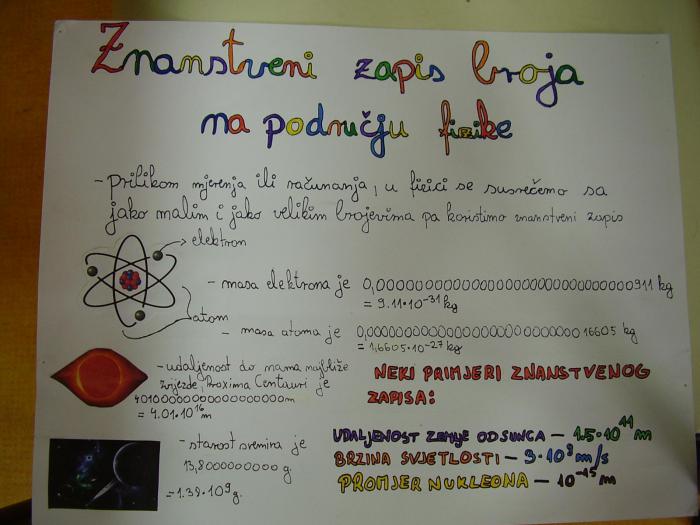 Znanstveni zapis broja
na području fizike
- prilikom mjerenja ili računanja, u fizici se susrećemo sa
jako malim i jako velikim brojevima pa koristimo znanstveni zapis
elektron
- masa elektrona je 0,000000000000000000000000000000911 kg
= 9.11·10⁻³¹ kg
atom
- masa atoma je 0,00000000000000000000000000 16605 kg
= 1,6605·10⁻²⁷ kg
- udaljenost do nama najbliže
zvijezde, Proxima Centauri je
40100000000000000m
= 4.01·10¹⁶ m
- starost svemira je
13,800000000 g.
= 1.38·10⁹ g.
NEKI PRIMJERI ZNANSTVENOG
ZAPISA:
UDALJENOST ZEMLJE OD SUNCA – 1.5·10¹¹ m
BRZINA SVJETLOSTI – 3·10⁸ m/s
PROMJER NUKLEONA – 10⁻¹⁵ m